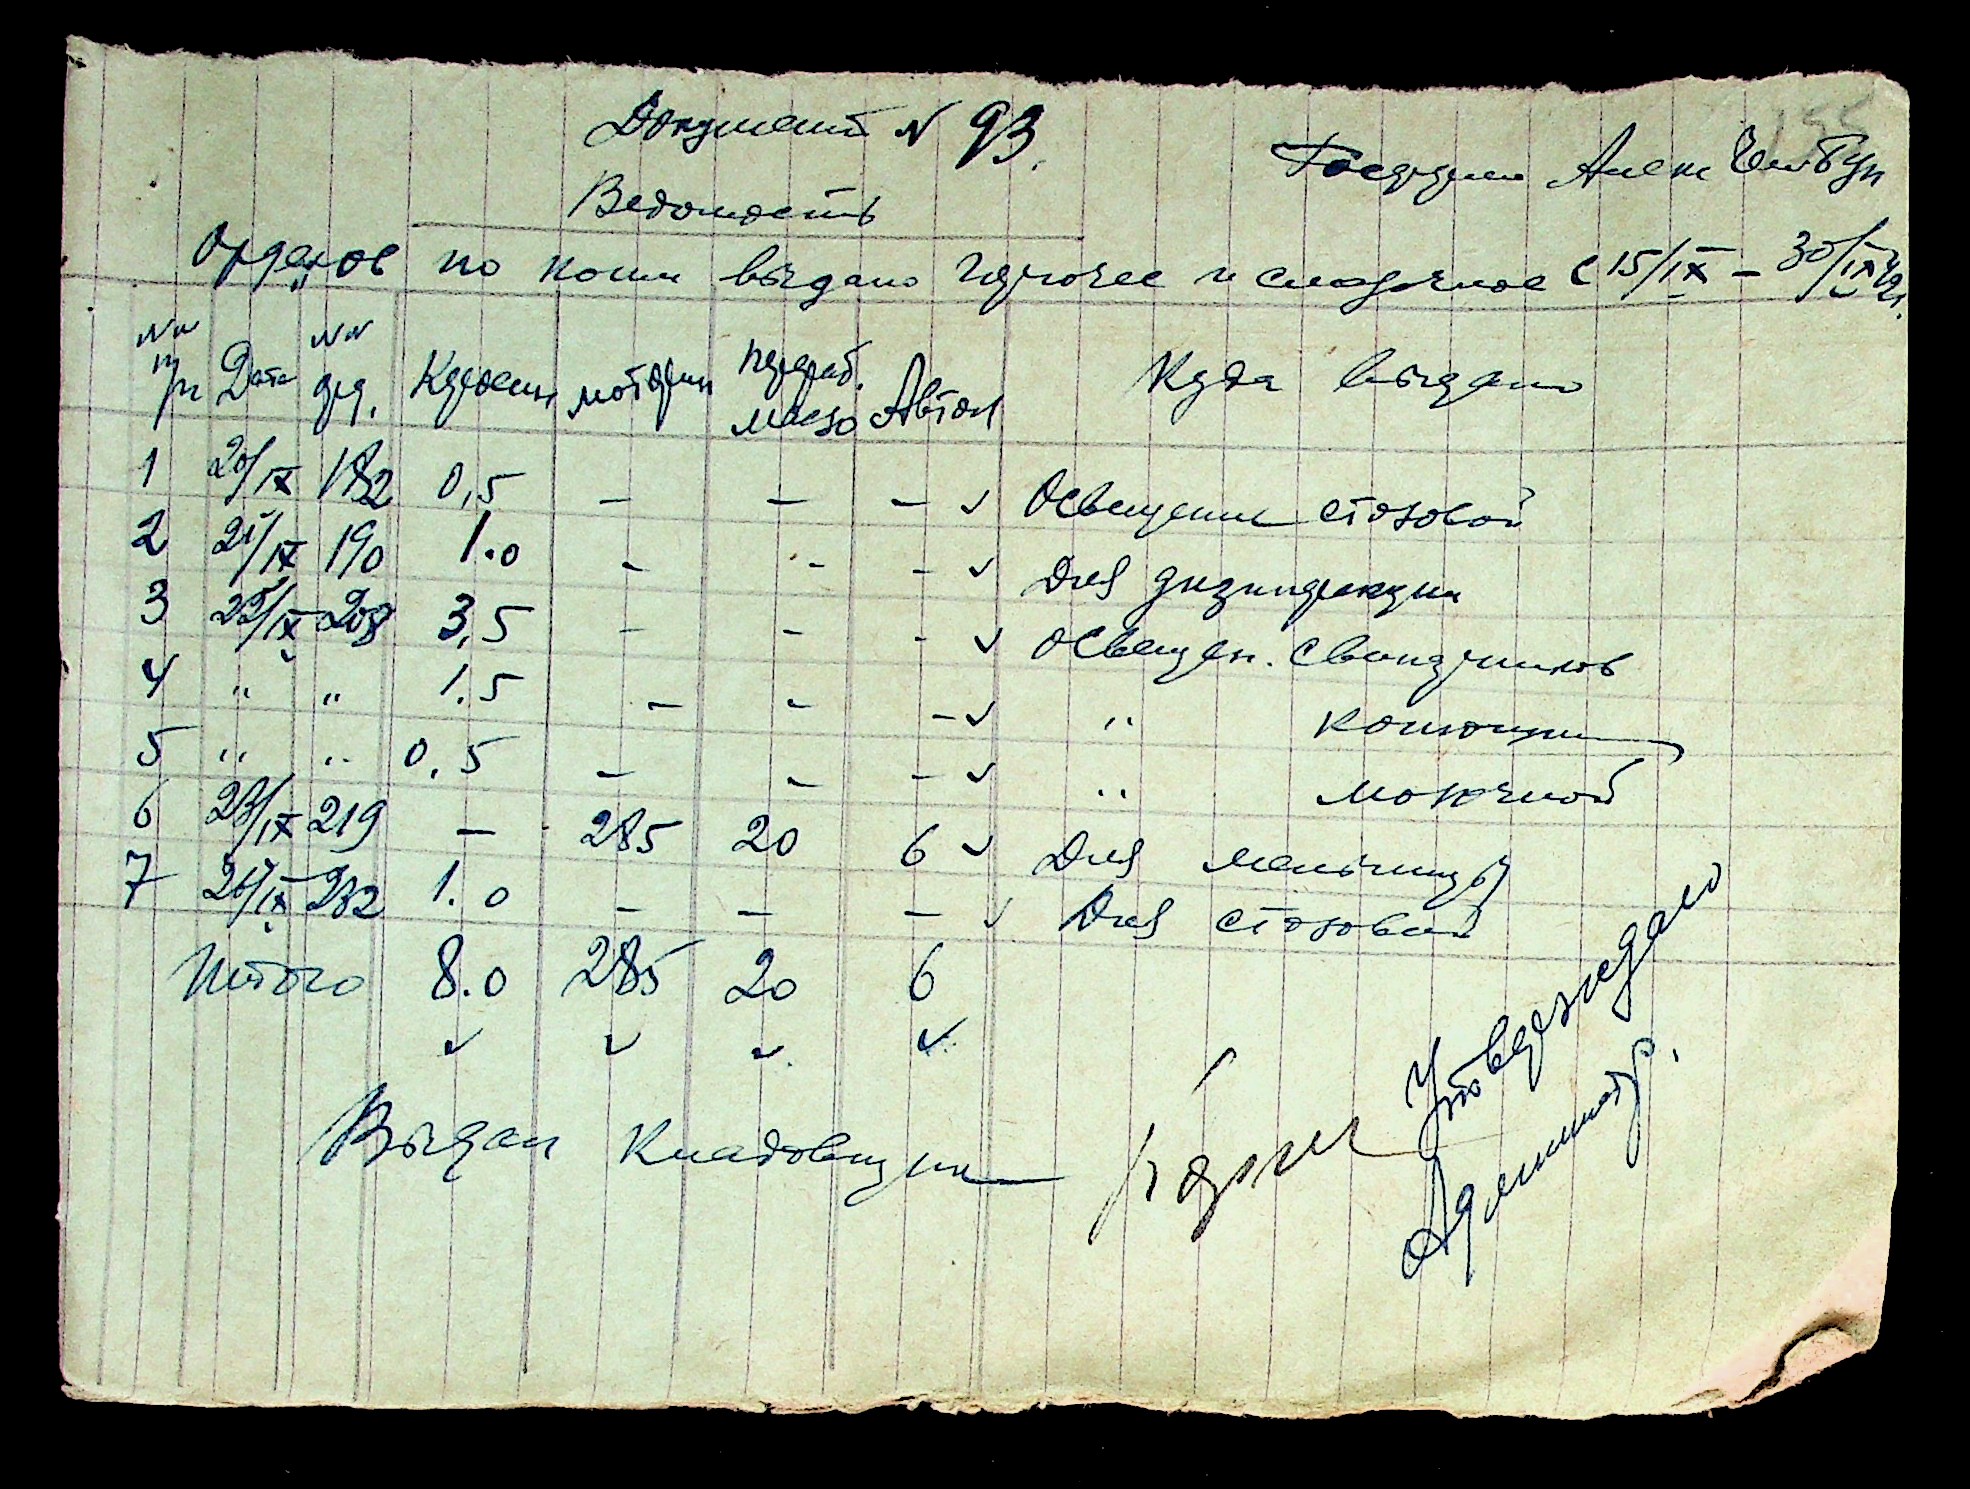 155
Документ N 93.
Алек
Ведомость
Ордеров по коим выдано горючее и смазочное с 15/IX – 30/IX 42г.
NN п/п Дата NN орд. Керосин моторин перераб. масло Автол Куда выдано
1 20/IX 182 0,5 – – – ✓ Освещение столовой
2 21/IX 190 1.0 – – – ✓ Для дизинфекции
3 22/IX 208 3,5 – – – ✓ Освещен. свинарников
4 " " 1.5 – – – ✓ " конюшни
5 " " 0,5 – – – ✓ " молочной
6 23/IX 219 – 285 20 6 ✓ Для мельницы
7 26/IX 232 1.0 – – – ✓ Для столовой
Итого 8.0 285 20 6
✓ ✓ ✓ ✓
Выдал Кладовщик
Утверждаю
Администр.